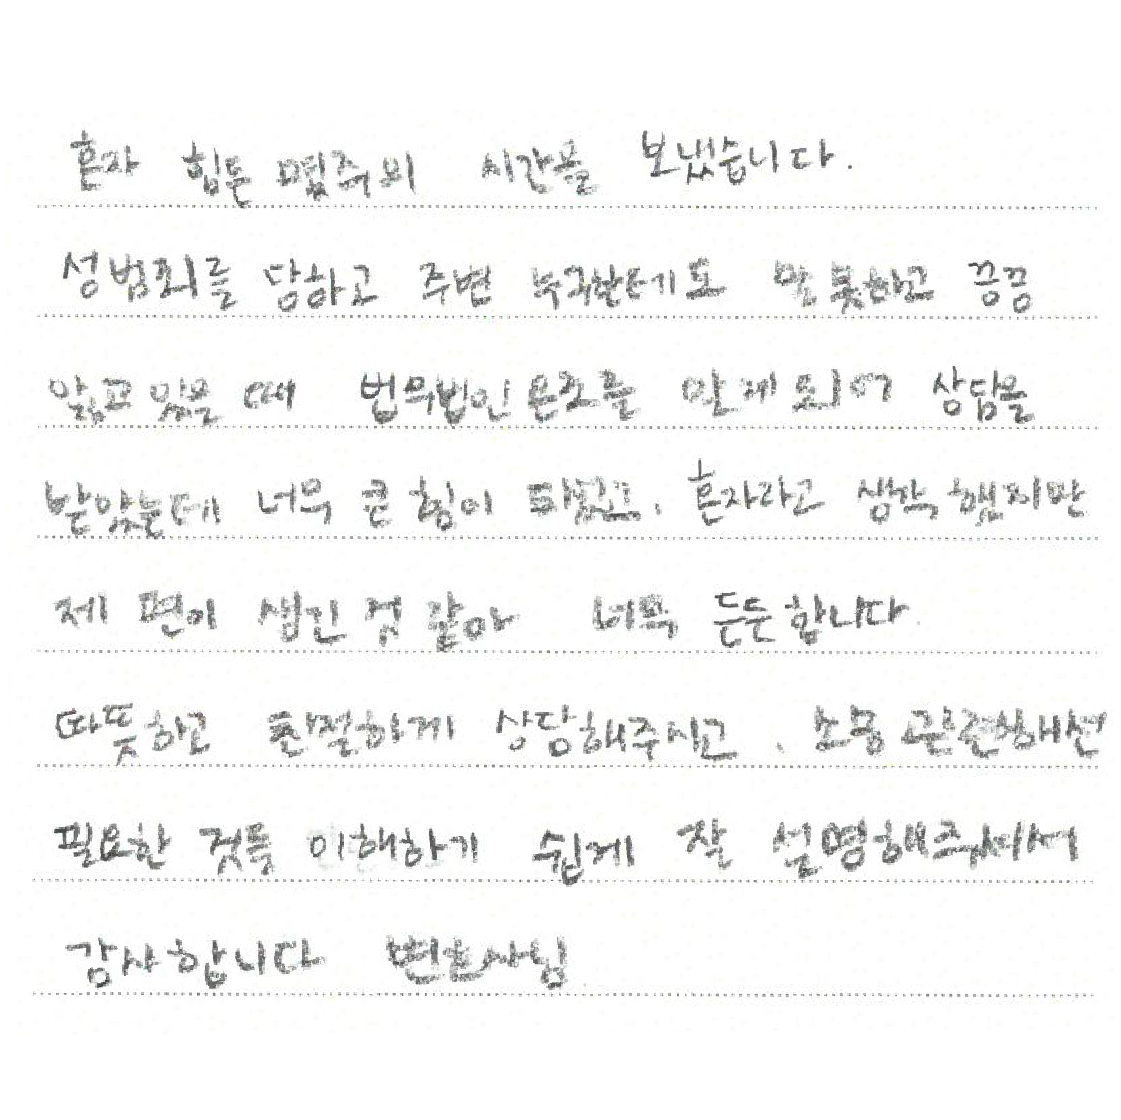 혼자 힘든 몇주의 시간을 보냈습니다.
성범죄를 당하고 주변 누구한테도 말 못하고 끙끙
앓고 있을 때 법무법인 온조를 알게 되어 상담을
받았는데 너무 큰 힘이 되었고, 혼자라고 생각했지만
제 편이 생긴 것 같아 너무 든든합니다.
따뜻하고 친절하게 상담해주시고, 소송 관련해선
필요한 것들 이해하기 쉽게 잘 설명해주셔서
감사합니다 변호사님